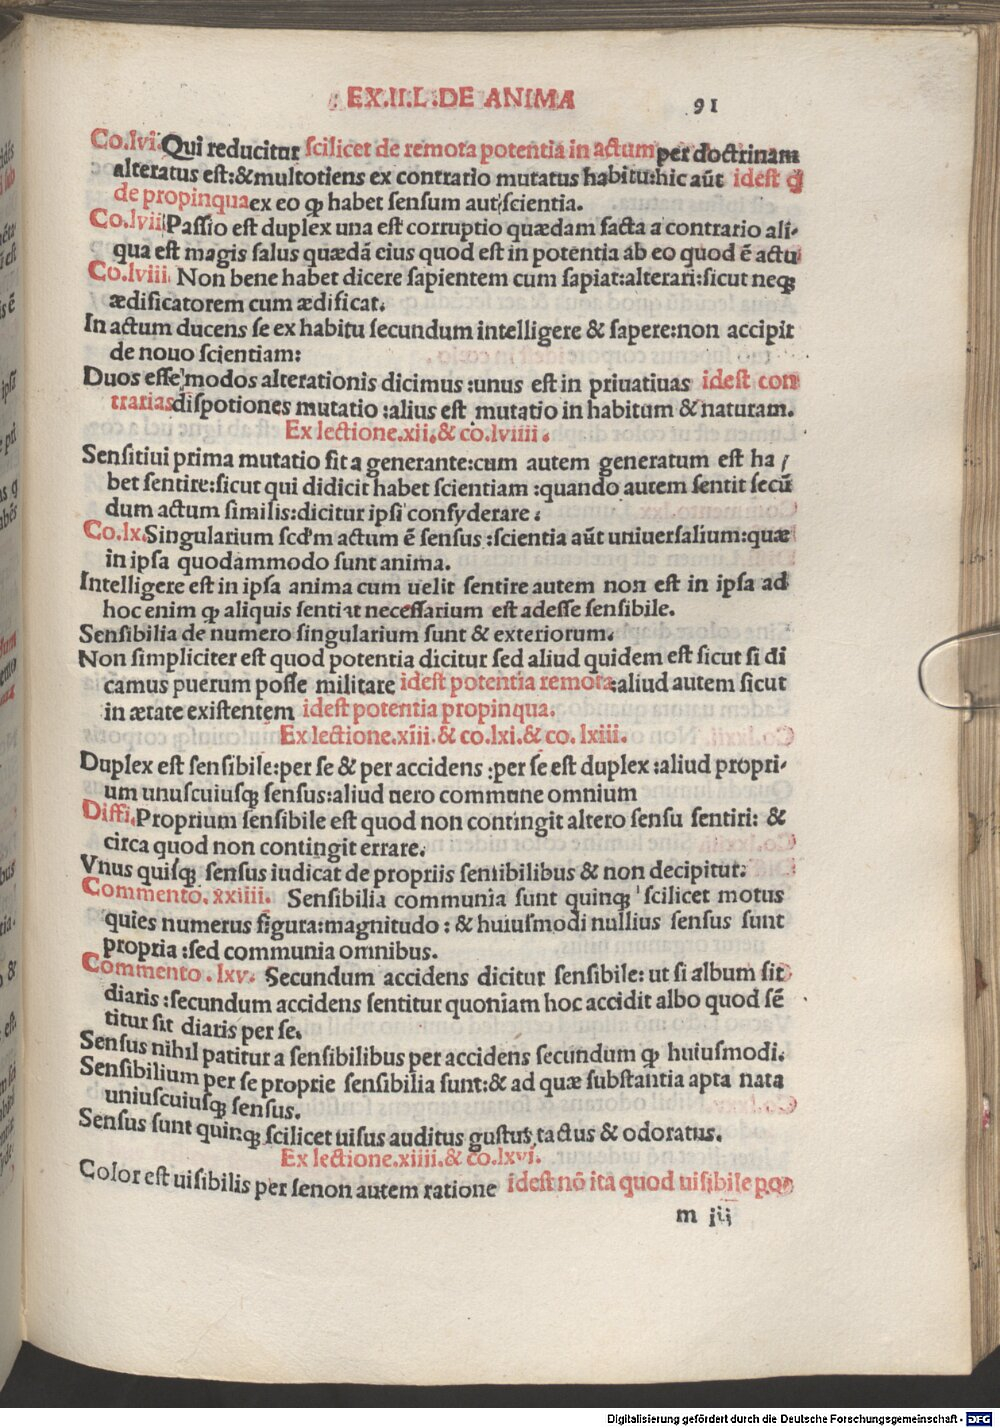 EX.II.L.DE ANIMA 91
Co.lvi. Qui reducitur scilicet de remota potentia in actum per doctrinam
alteratus est:&multotiens ex contrario mutatus habitu:hic aūt idest ꝗ
de propinqua ex eo ꝙ habet sensum aut scientia.
Co.lvii Passio est duplex una est corruptio quædam facta a contrario ali-
qua est magis salus quædā eius quod est in potentia ab eo quod ē actu
Co.lviii. Non bene habet dicere sapientem cum sapiat:alterari:sicut neqꝫ
ædificatorem cum ædificat.
In actum ducens se ex habitu secundum intelligere & sapere:non accipit
de nouo scientiam:
Duos esse modos alterationis dicimus :unus est in priuatiuas idest con
trarias dispotiones mutatio :alius est mutatio in habitum & naturam.
Ex lectione.xii.& co.lviiii.
Sensitiui prima mutatio fit a generante:cum autem generatum est ha/
bet sentire:sicut qui didicit habet scientiam :quando autem sentit secū
dum actum similis:dicitur ipsi consyderare.
Co.lx. Singularium scd'm actum ē sensus :scientia aūt uniuersalium:quæ
in ipsa quodammodo sunt anima.
Intelligere est in ipsa anima cum uelit sentire autem non est in ipsa ad
hoc enim ꝙ aliquis sentiat necessarium est adesse sensibile.
Sensibilia de numero singularium sunt & exteriorum.
Non simpliciter est quod potentia dicitur sed aliud quidem est sicut si di
camus puerum posse militare idest potentia remota:aliud autem sicut
in ætate existentem idest potentia propinqua.
Ex lectione.xiii.& co.lxi.& co. lxiii.
Duplex est sensibile:per se & per accidens :per se est duplex :aliud propri-
um unuscuiusqꝫ sensus:aliud uero commune omnium
Diffi. Proprium sensibile est quod non contingit altero sensu sentiri: &
circa quod non contingit errare.
Vnus quisqꝫ sensus iudicat de propriis sensibilibus & non decipitur.
Commento. xxiiii. Sensibilia communia sunt quinqꝫ scilicet motus
quies numerus figura:magnitudo : & huiusmodi nullius sensus sunt
propria :sed communia omnibus.
Commento . lxv. Secundum accidens dicitur sensibile: ut si album sit
diaris :secundum accidens sentitur quoniam hoc accidit albo quod sē
titur sit diaris per se.
Sensus nihil patitur a sensibilibus per accidens secundum ꝙ huiusmodi.
Sensibilium per se proprie sensibilia sunt:& ad quæ substantia apta nata
uniuscuiusqꝫ sensus.
Sensus sunt quinqꝫ scilicet uisus auditus gustus tactus & odoratus.
Ex lectione.xiiii.& co.lxvi.
Color est uisibilis per se non autem ratione idest nō ita quod uisibile pon
m iij
Digitalisierung gefördert durch die Deutsche Forschungsgemeinschaft - DFG